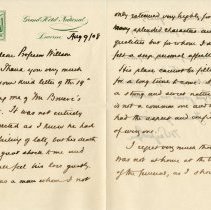 Grand Hotel National
Lucerne Aug 9/08
Dear Professor Wilson
Thank you very much
your kind letter of the 18th
telling me of Mr Brown's
It was not entirely
unexpected as I knew he had
of late, but his death
great shock to me and
feel his loss greatly.
was a man whom I not
only esteemed very highly for
many splendid characters and
qualities but for whom I
felt a deep personal
His place cannot be filled
for a long time to come.
a strong and clever nature
is not a common one and
had the respect and
of everyone
I regret very much that
was not at home at the
of the funeral, as I should